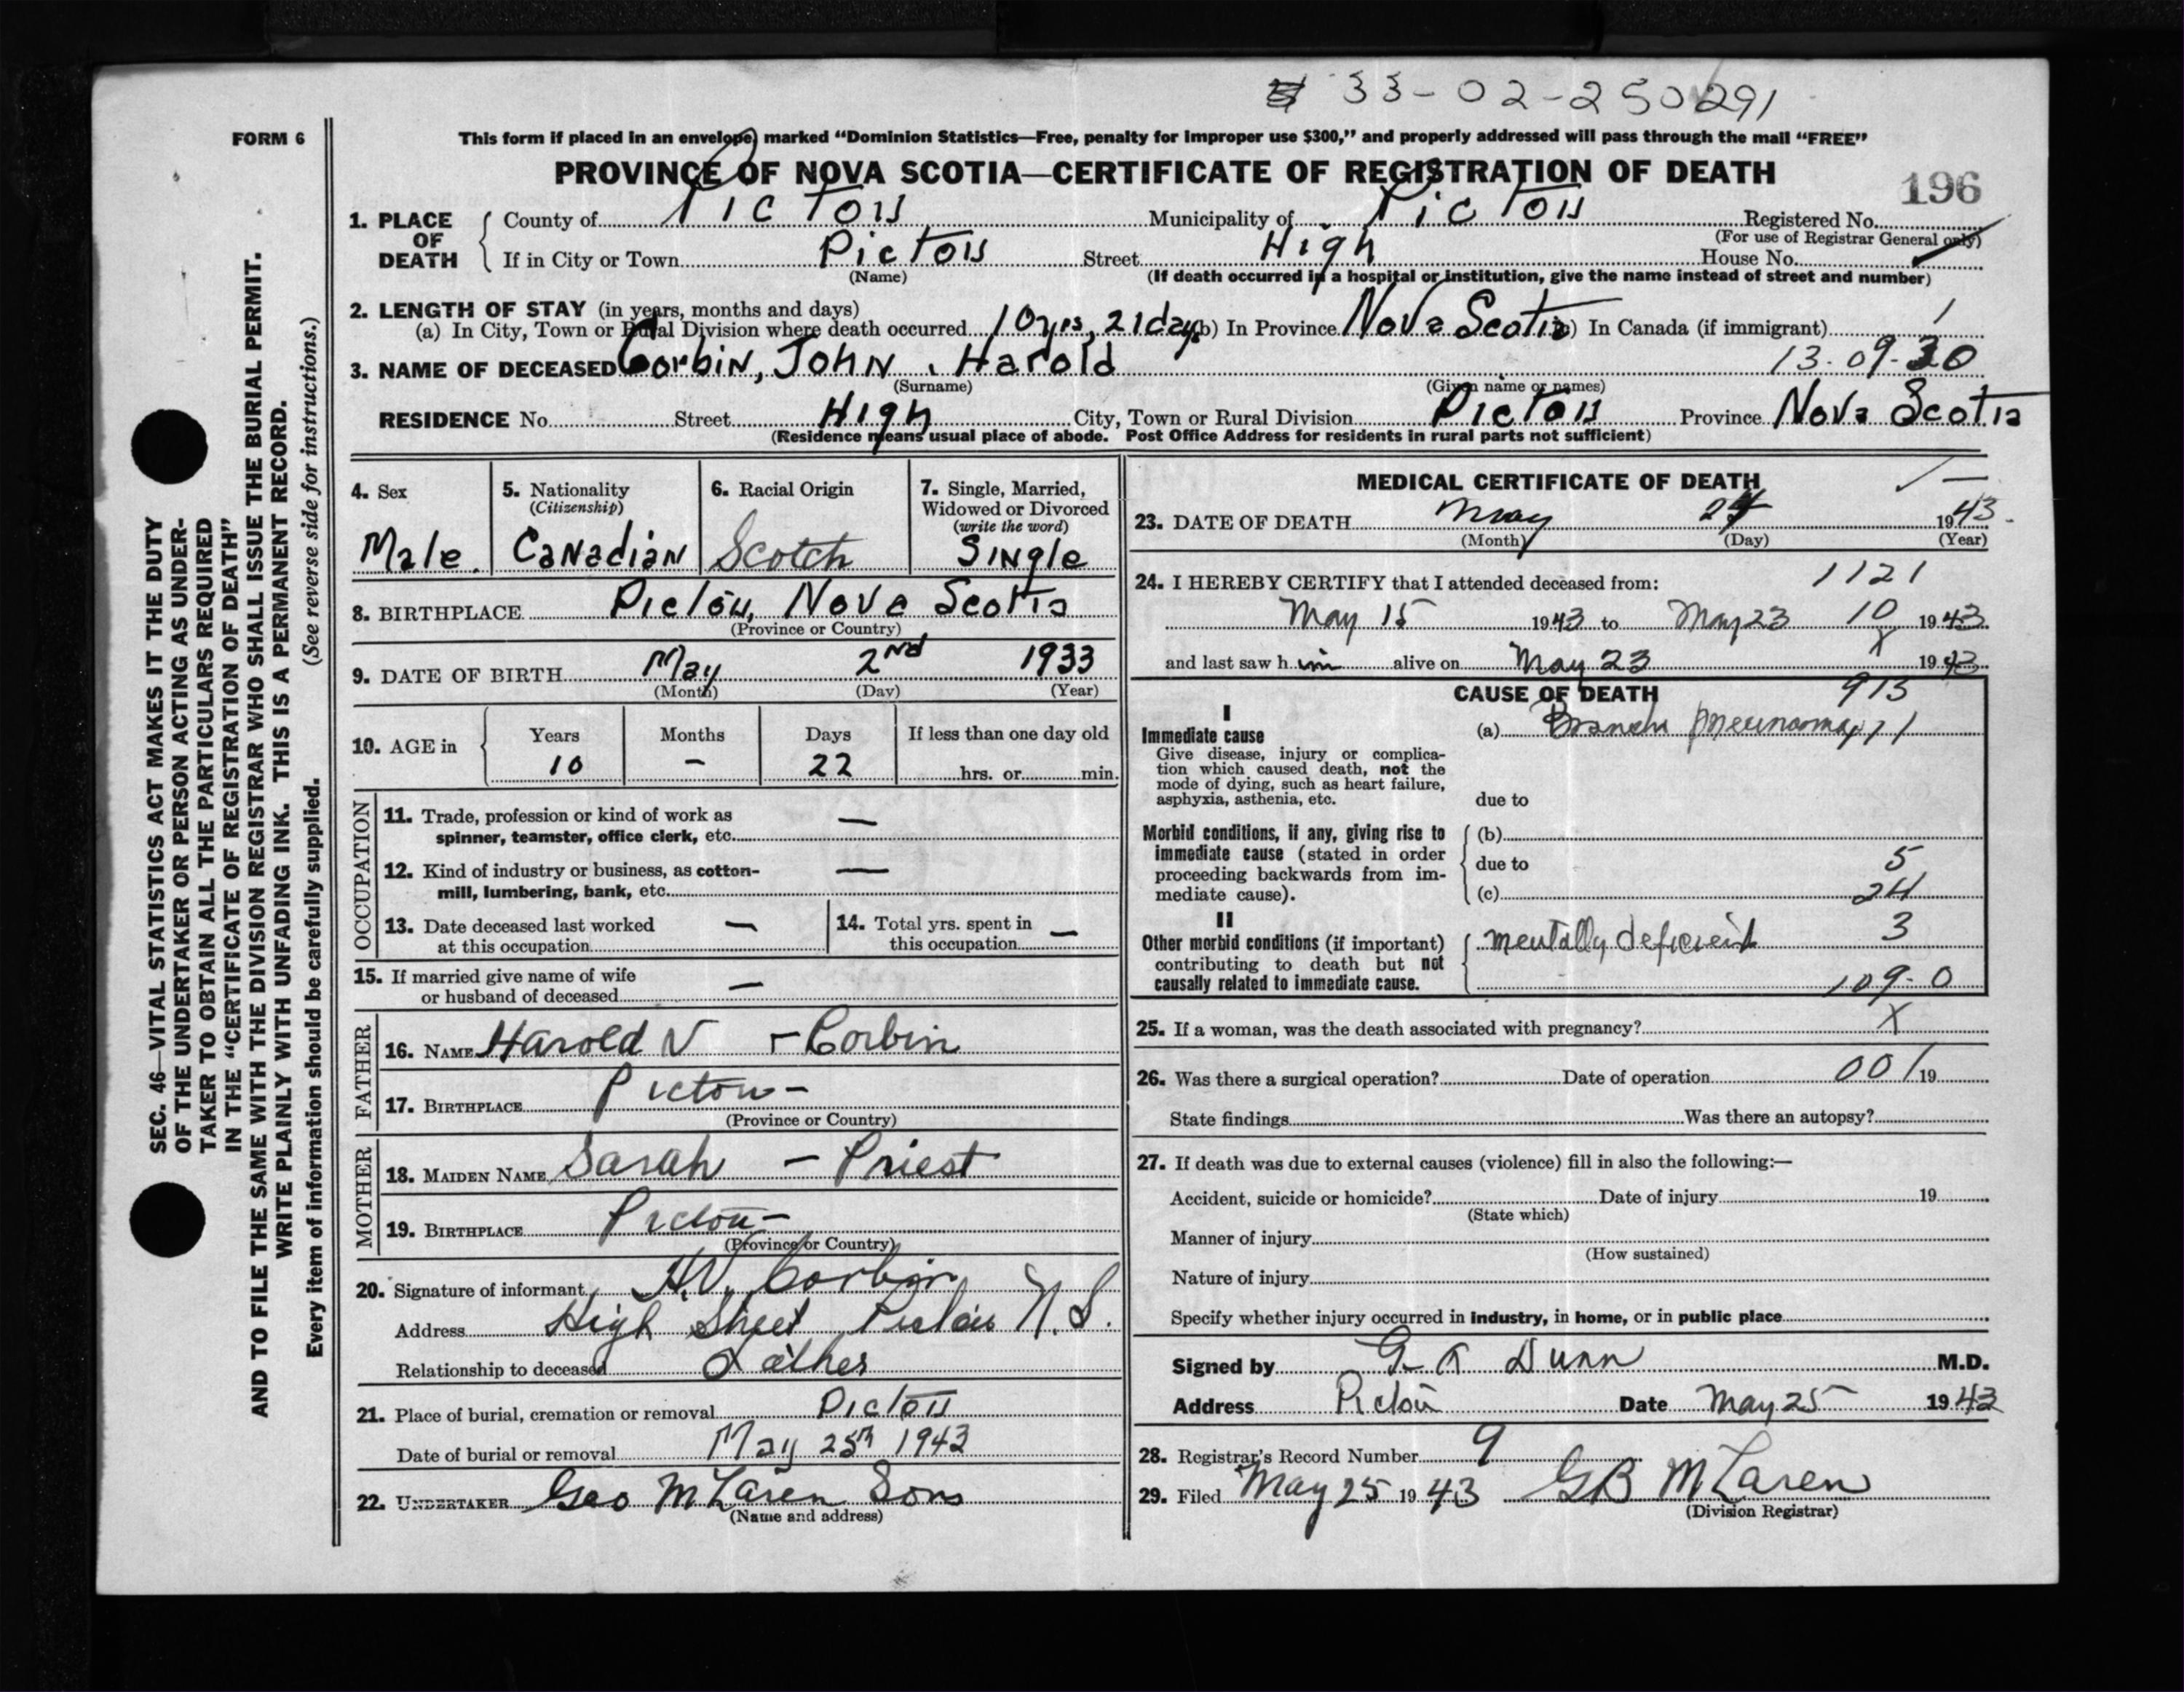 33-02-250291
FORM 6
This form if placed in an envelope, marked "Dominion Statistics—Free, penalty for improper use $300," and properly addressed will pass through the mail "FREE"
PROVINCE OF NOVA SCOTIA—CERTIFICATE OF REGISTRATION OF DEATH
196
1. PLACE OF DEATH County of Pictou Municipality of Pictou Registered No.
(For use of Registrar General only)
If in City or Town Pictou Street High House No.
(Name) (If death occurred in a hospital or institution, give the name instead of street and number)
2. LENGTH OF STAY (in years, months and days)
(a) In City, Town or Rural Division where death occurred 10 yrs, 21 days (b) In Province Nova Scotia (c) In Canada (if immigrant)
3. NAME OF DECEASED Corbin, John, Harold 13-09-30
(Surname) (Given name or names)
RESIDENCE No. Street High City, Town or Rural Division Pictou Province Nova Scotia
(Residence means usual place of abode. Post Office Address for residents in rural parts not sufficient)
SEC. 46—VITAL STATISTICS ACT MAKES IT THE DUTY
OF THE UNDERTAKER OR PERSON ACTING AS UNDER-
TAKER TO OBTAIN ALL THE PARTICULARS REQUIRED
IN THE "CERTIFICATE OF REGISTRATION OF DEATH"
AND TO FILE THE SAME WITH THE DIVISION REGISTRAR WHO SHALL ISSUE THE BURIAL PERMIT.
WRITE PLAINLY WITH UNFADING INK. THIS IS A PERMANENT RECORD.
Every item of information should be carefully supplied. (See reverse side for instructions.)
4. Sex
Male.
5. Nationality
(Citizenship)
Canadian
6. Racial Origin
Scotch
7. Single, Married,
Widowed or Divorced
(write the word)
Single
8. BIRTHPLACE Pictou, Nova Scotia
(Province or Country)
9. DATE OF BIRTH May 2nd 1933
(Month) (Day) (Year)
10. AGE in Years Months Days If less than one day old
10 – 22 hrs. or min.
OCCUPATION
11. Trade, profession or kind of work as
spinner, teamster, office clerk, etc. —
12. Kind of industry or business, as cotton-
mill, lumbering, bank, etc. —
13. Date deceased last worked
at this occupation —
14. Total yrs. spent in
this occupation —
15. If married give name of wife
or husband of deceased —
FATHER
16. NAME Harold V - Corbin
17. BIRTHPLACE Pictou -
(Province or Country)
MOTHER
18. MAIDEN NAME Sarah - Priest
19. BIRTHPLACE Pictou -
(Province or Country)
20. Signature of informant H.V. Corbin
Address High Street Pictou N.S.
Relationship to deceased Father
21. Place of burial, cremation or removal Pictou
Date of burial or removal May 25th 1943
22. UNDERTAKER Geo McLaren Sons
(Name and address)
MEDICAL CERTIFICATE OF DEATH
23. DATE OF DEATH May 24 1943.
(Month) (Day) (Year)
24. I HEREBY CERTIFY that I attended deceased from: 1121
May 15 1943 to May 23 10 1943
X
and last saw him alive on May 23 1943
CAUSE OF DEATH 913
I
Immediate cause
Give disease, injury or complica-
tion which caused death, not the
mode of dying, such as heart failure,
asphyxia, asthenia, etc.
(a) Broncho pneumonia 11
due to
Morbid conditions, if any, giving rise to
immediate cause (stated in order
proceeding backwards from im-
mediate cause).
(b)
due to 5
(c) 24
II
Other morbid conditions (if important)
contributing to death but not
causally related to immediate cause.
mentally deficient 3
109-0
25. If a woman, was the death associated with pregnancy? X
26. Was there a surgical operation? Date of operation 001 19
State findings Was there an autopsy?
27. If death was due to external causes (violence) fill in also the following:—
Accident, suicide or homicide? Date of injury 19
(State which)
Manner of injury
(How sustained)
Nature of injury
Specify whether injury occurred in industry, in home, or in public place
Signed by G A Dunn M.D.
Address Pictou Date May 25 1943
28. Registrar's Record Number 9
29. Filed May 25 1943 GB McLaren
(Division Registrar)